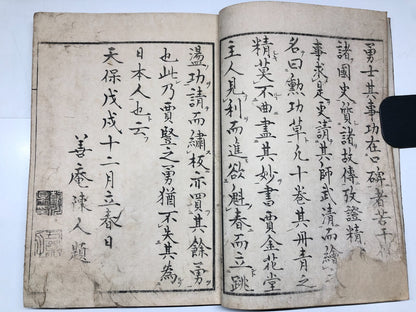 勇士其事功在心碑者若干
諸國史質諸故傳攷證精
事求是更請其師武清而繪
名曰勲功草凡十卷其丹青之
精英不曲盡其妙書賈金花堂
主人見利而進欲魁春而立跳
盪功請而繡梓亦買其餘勇
也此乃賈豎之勇猶不失其為
日本人也云
天保戊戌十二月立春日
善庵陳人題